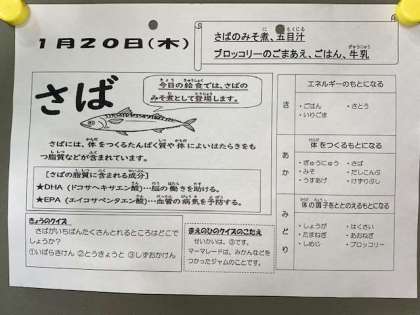 1月20日(木)
さばのみそ煮、五目汁
ブロッコリーのごまあえ、ごはん、牛乳
さば
今日の給食では、さばの
みそ煮として登場します。
さばには、体をつくるたんぱく質や体によいはたらきをも
つ脂質などが含まれています。
[さばの脂質に含まれる成分]
★DHA(ドコサヘキサエン酸)…脳の働きを助ける。
★EPA(エイコサペンタエン酸)…血管の病気を予防する。
きょうのクイズ
さばがいちばんたくさんとれるところはどこで
しょうか?
①いばらきけん ②とうきょうと ③しずおかけん
まえのひのクイズのこたえ
せいかいは、③です。
マーマレードは、みかんなどを
つかったジャムのことです。
き
エネルギーのもとになる
・ごはん ・さとう
・いりごま
あか
体をつくるもとになる
・ぎゅうにゅう ・さば
・みそ ・だしこんぶ
・うすあげ ・けずりぶし
みどり
体の調子をととのえるもとになる
・しょうが ・はくさい
・たまねぎ ・あおねぎ
・しめじ ・ブロッコリー